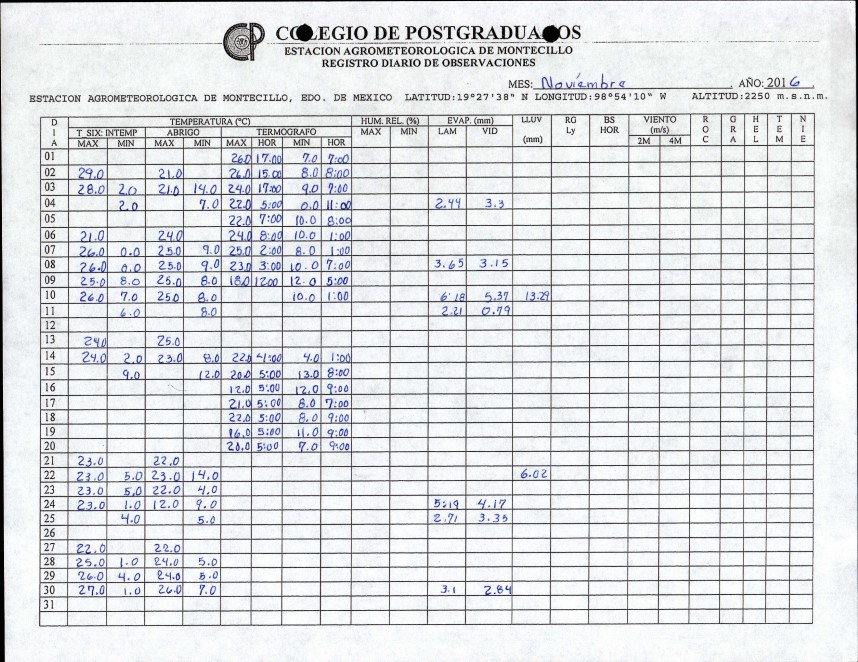 COLEGIO DE POSTGRADUADOS
ESTACION AGROMETEOROLOGICA DE MONTECILLO
REGISTRO DIARIO DE OBSERVACIONES
MES: Noviembre AÑO: 2016
ESTACION AGROMETEOROLOGICA DE MONTECILLO, EDO. DE MEXICO LATITUD:19°27'38" N LONGITUD:98°54'10" W ALTITUD:2250 m.s.n.m.
DIA TEMPERATURA (°C) HUM. REL. (%) EVAP. (mm) LLUV (mm) RG Ly BS HOR VIENTO (m/s) ROC GRA HEL TEM NIE
T SIX: INTEMP ABRIGO TERMOGRAFO MAX MIN LAM VID
MAX MIN MAX MIN MAX HOR MIN HOR 2M 4M
01 26.0 17.00 7.0 7:00
02 29.0 21.0 26.0 15.00 8.0 8:00
03 28.0 2.0 21.0 14.0 24.0 17:00 9.0 7:00
04 2.0 7.0 22.0 5:00 0.0 11:00 2.44 3.3
05 22.0 7:00 10.0 8:00
06 21.0 24.0 24.0 8:00 10.0 1:00
07 26.0 0.0 25.0 9.0 25.0 2:00 8.0 1:00
08 26.0 0.0 25.0 9.0 23.0 3:00 10.0 7:00 3.65 3.15
09 25.0 8.0 25.0 8.0 18.0 1200 12.0 5:00
10 26.0 7.0 25.0 8.0 10.0 1:00 6.18 5.37 13.29
11 6.0 8.0 2.21 0.79
12
13 24.0 25.0
14 24.0 2.0 23.0 8.0 22.0 4:00 4.0 1:00
15 9.0 12.0 20.0 5:00 13.0 8:00
16 12.0 5:00 12.0 9:00
17 21.0 5:00 8.0 7:00
18 22.0 5:00 8.0 9:00
19 16.0 5:00 11.0 9:00
20 20.0 5:00 7.0 9:00
21 23.0 22.0
22 23.0 5.0 23.0 14.0 6.02
23 23.0 5.0 22.0 4.0
24 23.0 1.0 12.0 9.0 5.19 4.17
25 4.0 5.0 2.71 3.35
26
27 22.0 22.0
28 25.0 1.0 24.0 5.0
29 26.0 4.0 24.0 5.0
30 27.0 1.0 26.0 7.0 3.1 2.84
31